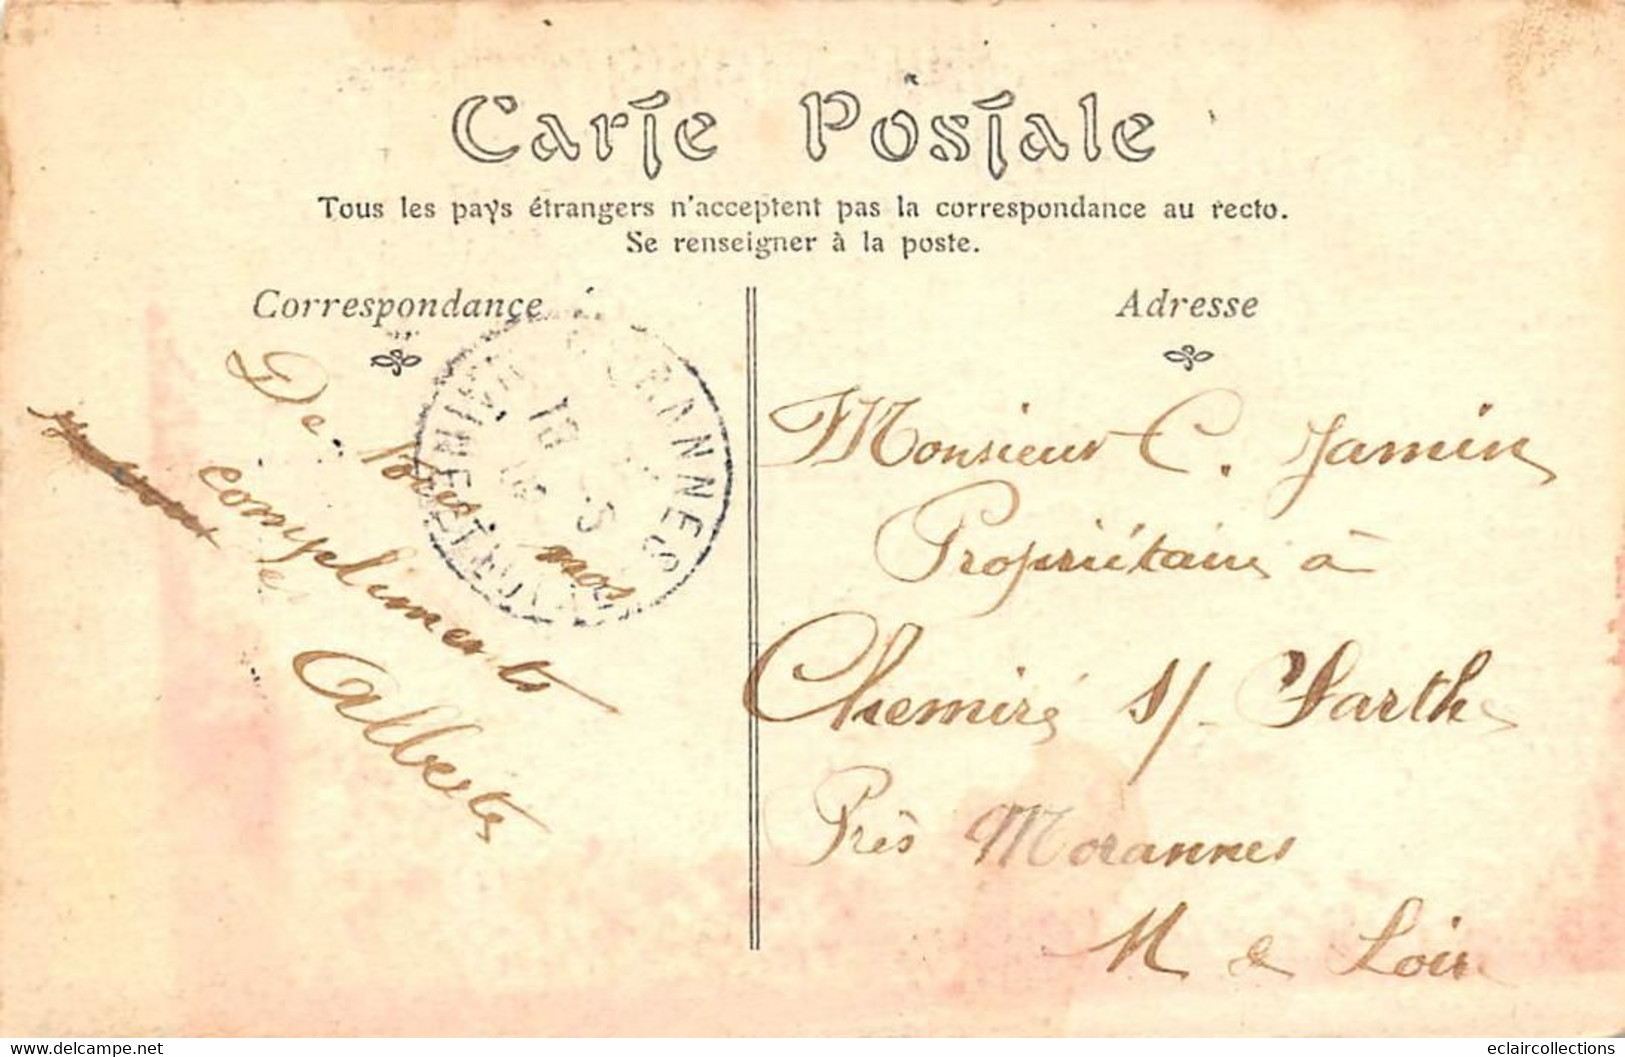 Carte Postale
Tous les pays étrangers n'acceptent pas la correspondance au recto.
Se renseigner à la poste.
Correspondance
De tous mos
compliments
Alberte
MORANNES
MAINE-ET-LOIRE
18 - 5
Adresse
Monsieur C. Jamin
Propriétaire à
Chemiré s/ Sarthe
Près Morannes
M & Loire
www.delcampe.net
eclaircollections